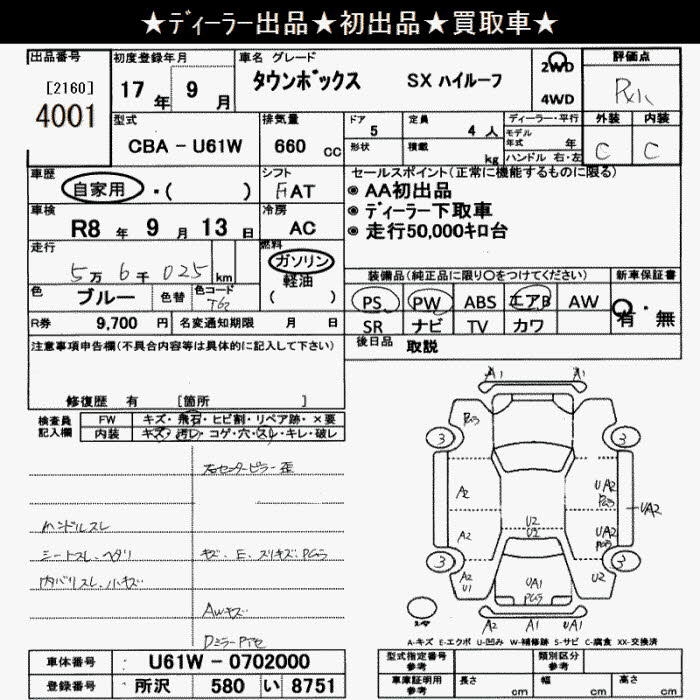 ★ディーラー出品★初出品★買取車★
出品番号
[2160]
4001
初度登録年月
17年 9月
車名 グレード
タウンボックス SX ハイルーフ
2WD
4WD
評価点
型式
CBA - U61W
排気量
660 cc
ドア
5
形状
定員
4 人
積載
kg
ディーラー・平行
モデル年式 年
ハンドル 右・左
外装
C
内装
C
車歴
自家用 ・( )
シフト
AT
セールスポイント(正常に機能するものに限る)
◉ AA初出品
◉ ディーラー下取車
◉ 走行50,000キロ台
車検
R8 年 9 月 13 日
冷房
AC
走行
5万 6千 025 km
燃料
ガソリン
軽油
( )
装備品(純正品に限り○をつけてください)
新車保証書
PS PW ABS エアB AW
SR ナビ TV カワ
有・無
色
ブルー
色替
色コード
T62
R券 9,700 円
名変通知期限 月 日
後日品 取説
注意事項申告欄(不具合内容等は具体的に記入して下さい)
修復歴 有 [箇所 ]
検査員記入欄
FW
キズ・飛石・ヒビ割・リペア跡・×要
内装
キズ・汚レ・コゲ・穴・スレ・キレ・破レ
右センターピラー歪
ハンドルスレ
シートスレ、ヘタリ
キズ、E、スリキズ、PCろ
内バリスレ、小キズ
AWキズ
DミラーPTセ
A1
A1
3
3
A2
UA2
UA2
A2
U2
U2
UA2
3
3
A2
U1
UA1
U2
A2
A1
UA1
A-キズ E-エクボ U-凹み W-補修跡 S-サビ C-腐食 XX-交換済
車体番号
U61W - 0702000
登録番号
所沢 580 い 8751
型式指定番号
参考
類別区分
参考
車庫証明用
参考
長さ
cm
幅
cm
高さ
cm